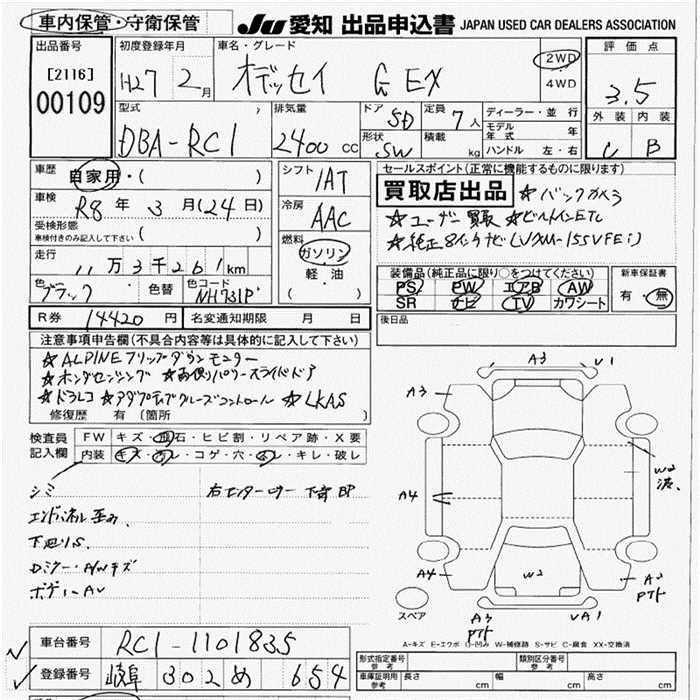 車内保管・守衛保管
JU 愛知 出品申込書 JAPAN USED CAR DEALERS ASSOCIATION
出品番号 [2116] 00109
初度登録年月 H27 2月
車名・グレード オデッセイ G EX
2WD 4WD
評価点 3.5
型式 DBA-RC1
排気量 2400 cc
ドア 5D 定員 7人
形状 SW 積載 kg
ディーラー・並行
モデル年式 年
ハンドル 左・右
外装 C 内装 B
車歴 自家用・( )
車検 R8年3月(24日)
受検形態
車検付きのみ記入して下さい ( )
走行 11万3千261km
色 ブラック 色替 色コード NH731P
シフト IAT
冷房 AAC
燃料 ガソリン
軽・油
( )
セールスポイント(正常に機能するものに限ります)
買取店出品 ☆バックカメラ
☆ユーザー買取 ☆ビルトインETC
☆純正8インチナビ(VXM-155VFEi)
装備品(純正品に限り○をつけてください)
PS PW エアB AW
SR ナビ TV カワシート
新車保証書
有・無
R券 14420円 名変通知期限 月 日
後日品
注意事項申告欄(不具合内容等は具体的に記入して下さい)
☆ALPINEフリップダウンモニター
☆ホンダセンシング ☆両側パワースライドドア
☆ドラレコ ☆アダプティブクルーズコントロール ☆LKAS
修復歴 有 (箇所 )
検査員記入欄
FW キズ・飛石・ヒビ割・リペア跡・X要
内装 キズ・汚レ・コゲ・穴・スレ・キレ・破レ
シミ 右センターピラー下部BP
エンドパネル歪み
下廻りS
Dミラー・A/Wキズ
ボディーAU
A3 V1
A3
W2 波
A4
A4
W2
A2 PTト
スペア
A3 PTト
UA1
A-キズ E-エクボ U-凹み W-補修跡 S-サビ C-腐食 XX-交換済
車台番号 RC1-1101835
登録番号 岐阜 302 め 654
形式指定番号 参考
類別区分番号 参考
車庫証明用 参考 長さ cm 幅 cm 高さ cm